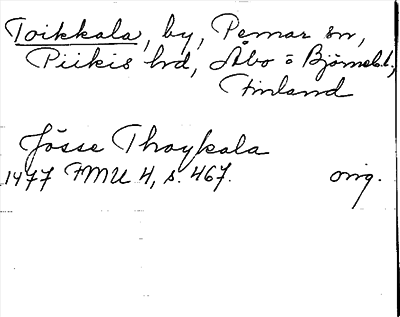 Toikkala, by, Pemar sn,
Piikis hrd, Åbo o Björneb.l.,
Finland
Jösse Thoykala
1477 FMU 4, s. 467. orig.